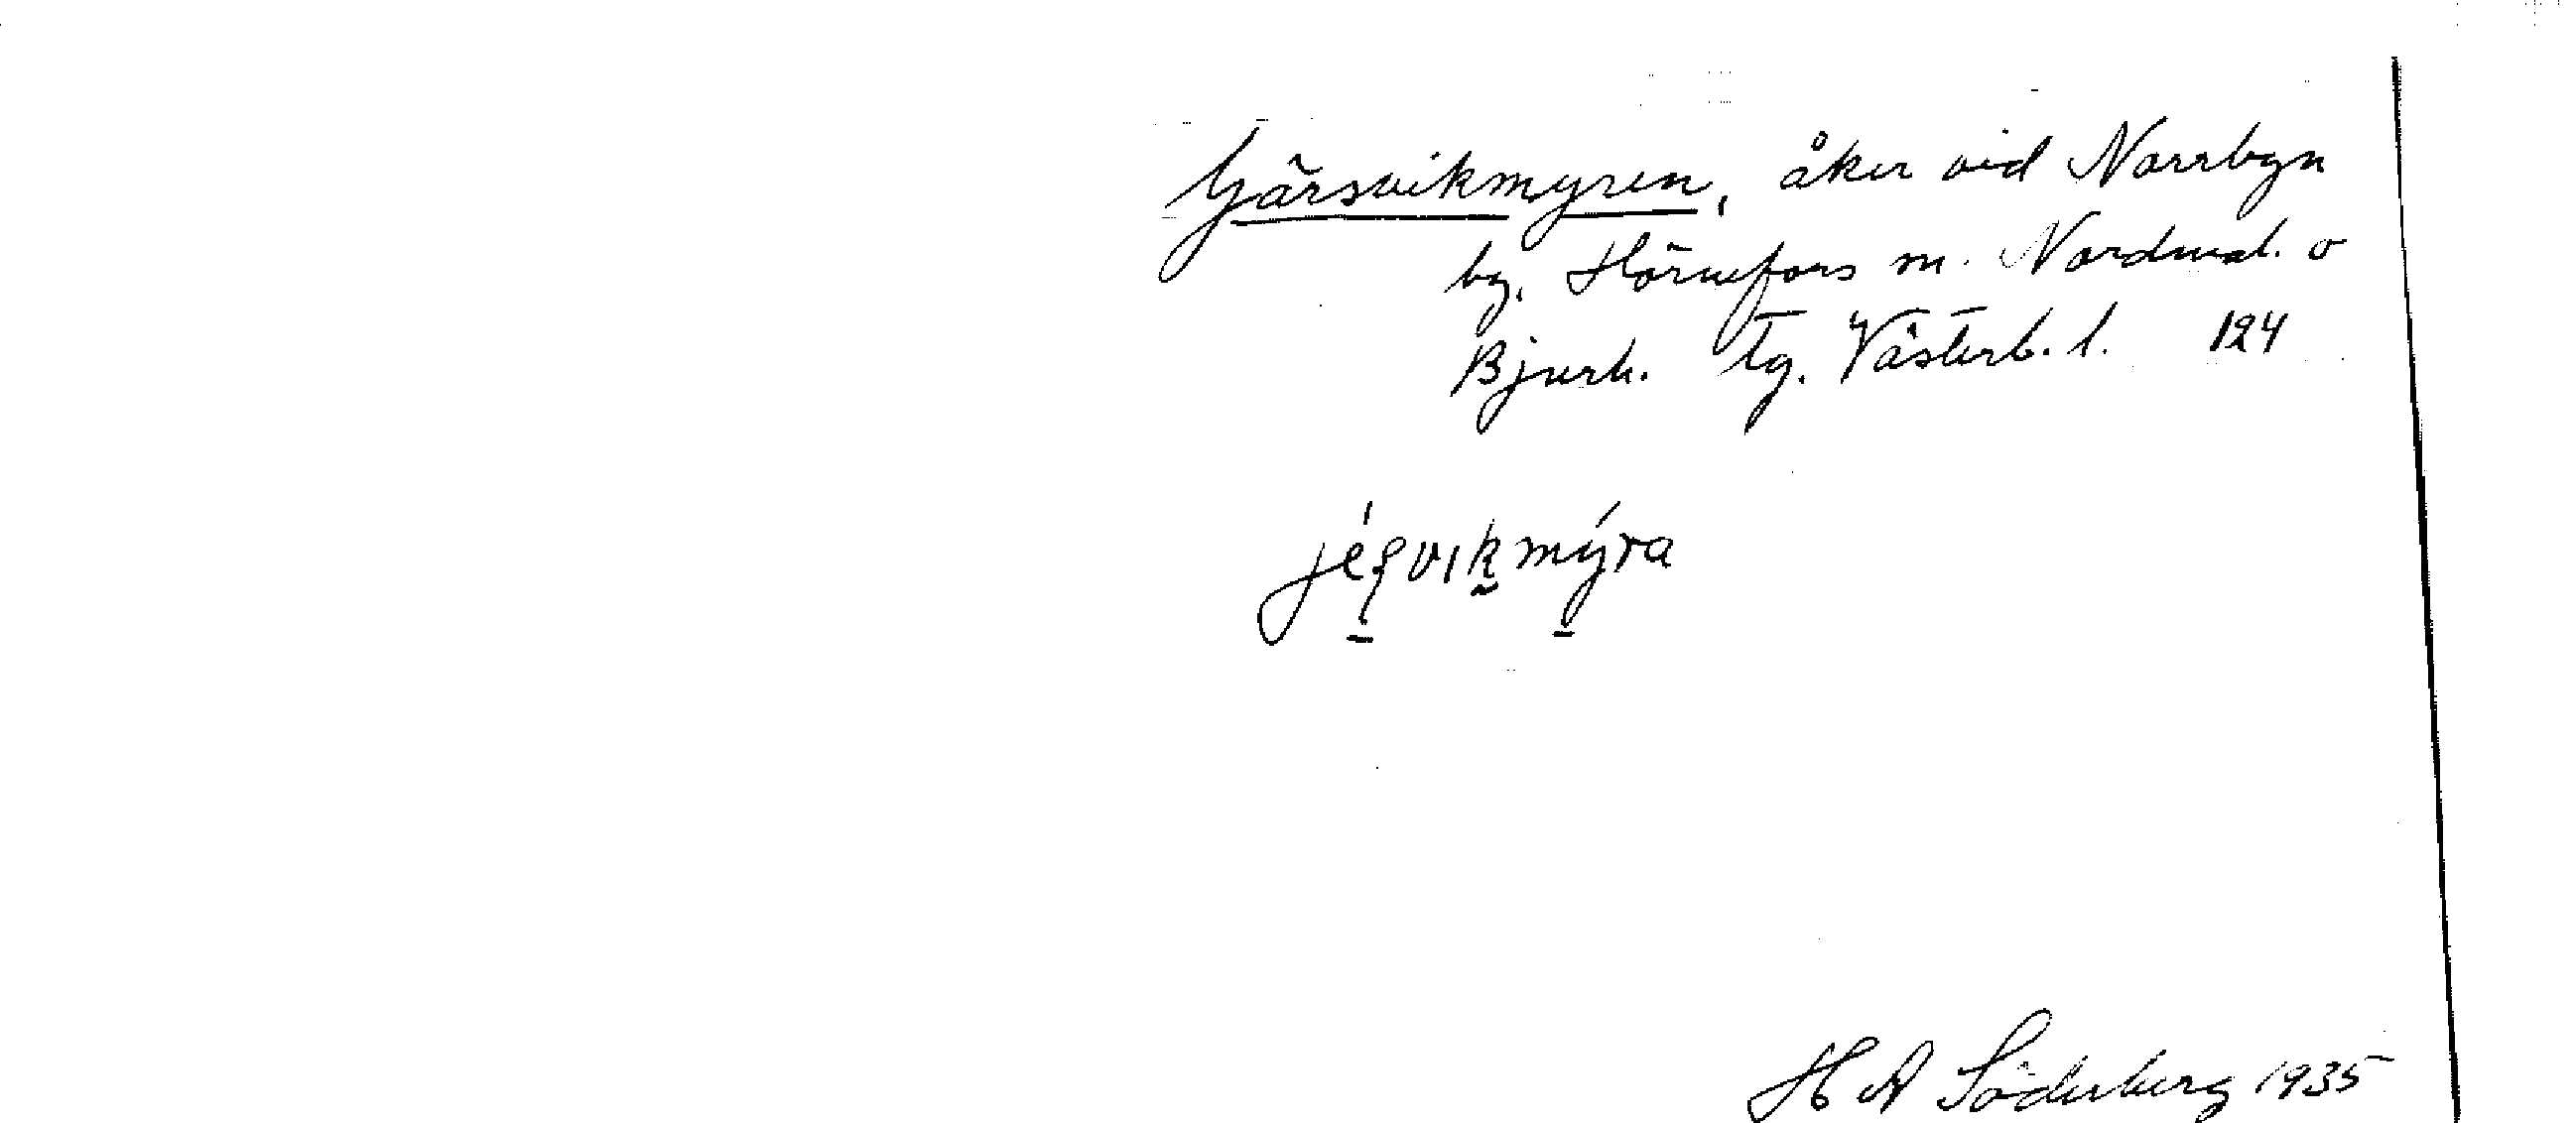 Gärsvikmyren, åker vid Norrbyn
by. Hörnefors m. Nordmal. o
Bjurh. tg. Västerb. l. 124
H A Söderberg 1935